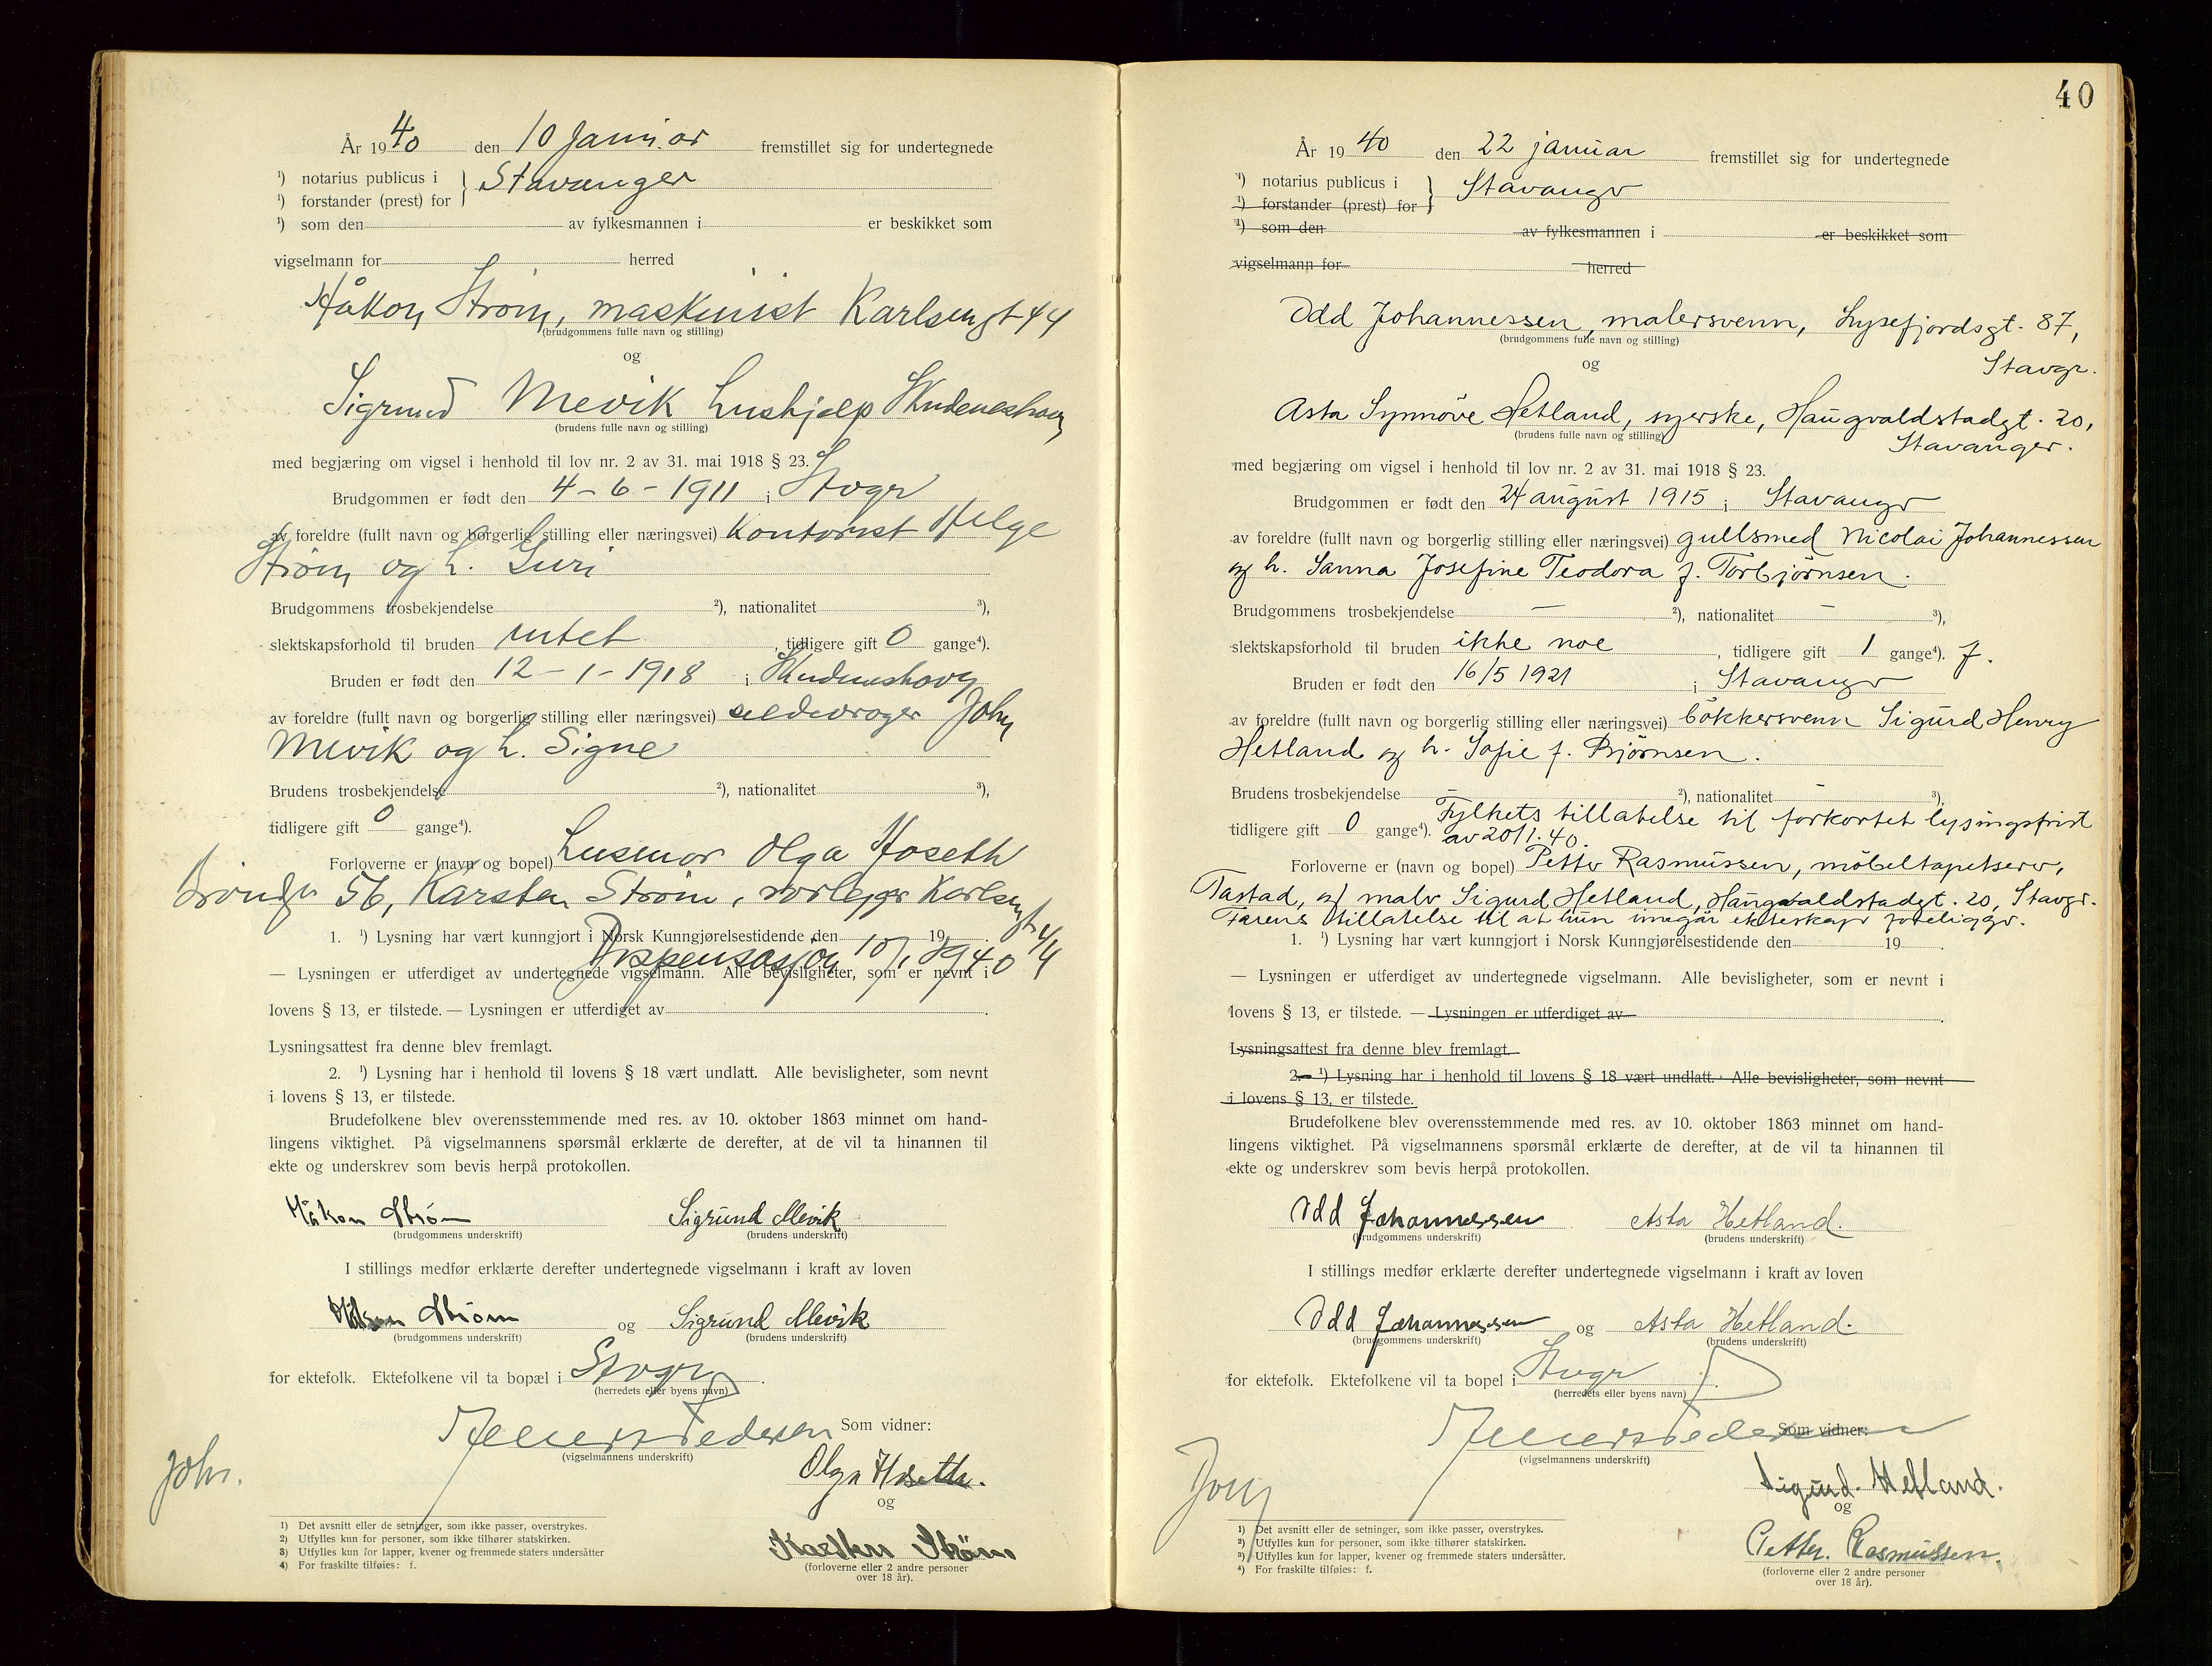 År 1940 den 10 Januar fremstillet sig for undertegnede
¹) notarius publicus i } Stavanger
¹) forstander (prest) for
¹) som den av fylkesmannen i er beskikket som
vigselmann for herred
Håkon Strøm, maskinist Karlsmgt 44
(brudgommens fulle navn og stilling)
og
Sigrund Mevik hushjelp Skudeneshavn
(brudens fulle navn og stilling)
med begjæring om vigsel i henhold til lov nr. 2 av 31. mai 1918 § 23.
Brudgommen er født den 4-6-1911 i Stvgr
av foreldre (fullt navn og borgerlig stilling eller næringsvei) Kontorist Helge
Strøm og h. Guri
Brudgommens trosbekjendelse ²), nationalitet ³),
slektskapsforhold til bruden intet, tidligere gift 0 gange⁴).
Bruden er født den 12-1-1918 i Skudeneshavn
av foreldre (fullt navn og borgerlig stilling eller næringsvei) sildevrager John
Mevik og h. Signe
Brudens trosbekjendelse ²), nationalitet ³),
tidligere gift 0 gange⁴).
Forloverne er (navn og bopel) husmor Olga Hoseth
56, Karsten Strøm, rørlegger Karlsmgt 44
1. ¹) Lysning har vært kunngjort i Norsk Kunngjørelsestidende den 19 .
Dispensasjon 10/1 1940
— Lysningen er utferdiget av undertegnede vigselmann. Alle bevisligheter, som er nevnt i
lovens § 13, er tilstede. — Lysningen er utferdiget av .
Lysningsattest fra denne blev fremlagt.
2. ¹) Lysning har i henhold til lovens § 18 vært undlatt. Alle bevisligheter, som nevnt
i lovens § 13, er tilstede.
Brudefolkene blev overensstemmende med res. av 10. oktober 1863 minnet om hand-
lingens viktighet. På vigselmannens spørsmål erklærte de derefter, at de vil ta hinannen til
ekte og underskrev som bevis herpå protokollen.
Håkon Strøm Sigrund Mevik
(brudgommens underskrift) (brudens underskrift)
I stillings medfør erklærte derefter undertegnede vigselmann i kraft av loven
Håkon Strøm og Sigrund Mevik
(brudgommens underskrift) (brudens underskrift)
for ektefolk. Ektefolkene vil ta bopæl i Stvgr .
(herredets eller byens navn)
Pedersen Som vidner:
(vigselmannens underskrift)
Olga Hoseth.
og
Karsten Strøm
(forloverne eller 2 andre personer
over 18 år).
1) Det avsnitt eller de setninger, som ikke passer, overstrykes.
2) Utfylles kun for personer, som ikke tilhører statskirken.
3) Utfylles kun for lapper, kvener og fremmede staters undersåtter
4) For fraskilte tilføies: f.
40
År 1940 den 22 januar fremstillet sig for undertegnede
¹) notarius publicus i } Stavanger
¹) forstander (prest) for
¹) som den av fylkesmannen i er beskikket som
vigselmann for herred
Odd Johannessen, malersvenn, Lysefjordsgt. 87,
(brudgommens fulle navn og stilling)
Stavgr.
og
Asta Synnøve Hetland, syerske, Haugvaldstadgt. 20,
(brudens fulle navn og stilling)
Stavanger.
med begjæring om vigsel i henhold til lov nr. 2 av 31. mai 1918 § 23.
Brudgommen er født den 24 august 1915 i Stavanger
av foreldre (fullt navn og borgerlig stilling eller næringsvei) gullsmed Nicolai Johannessen
og h. Sanna Josefine Teodora f. Torbjørnsen.
Brudgommens trosbekjendelse — ²), nationalitet — ³),
slektskapsforhold til bruden ikke noe, tidligere gift 1 gange⁴). f.
Bruden er født den 16/5 1921 i Stavanger
av foreldre (fullt navn og borgerlig stilling eller næringsvei) bøkkersvenn Sigurd Henry
Hetland og h. Sofie f. Bjørnsen.
Brudens trosbekjendelse — ²), nationalitet — ³),
Fylkets tillatelse til forkortet lysingsfrist
tidligere gift 0 gange⁴). av 20/1. 40.
Forloverne er (navn og bopel) Petter Rasmussen, møbeltapetserer,
Tastad, og maler Sigurd Hetland, Haugvaldstadgt. 20, Stavgr.
Farens tillatelse til at hun inngår ekteskap foreligger.
1. ¹) Lysning har vært kunngjort i Norsk Kunngjørelsestidende den 19 .
— Lysningen er utferdiget av undertegnede vigselmann. Alle bevisligheter, som er nevnt i
lovens § 13, er tilstede. — Lysningen er utferdiget av .
Lysningsattest fra denne blev fremlagt.
2. ¹) Lysning har i henhold til lovens § 18 vært undlatt. Alle bevisligheter, som nevnt
i lovens § 13, er tilstede.
Brudefolkene blev overensstemmende med res. av 10. oktober 1863 minnet om hand-
lingens viktighet. På vigselmannens spørsmål erklærte de derefter, at de vil ta hinannen til
ekte og underskrev som bevis herpå protokollen.
Odd Johannessen Asta Hetland.
(brudgommens underskrift) (brudens underskrift)
I stillings medfør erklærte derefter undertegnede vigselmann i kraft av loven
Odd Johannessen og Asta Hetland.
(brudgommens underskrift) (brudens underskrift)
for ektefolk. Ektefolkene vil ta bopel i Stvgr .
(herredets eller byens navn)
Pedersen Som vidner:
(vigselmannens underskrift)
Sigurd. Hetland.
og
Petter. Rasmussen.
(forloverne eller 2 andre personer
over 18 år).
1) Det avsnitt eller de setninger, som ikke passer, overstrykes.
2) Utfylles kun for personer, som ikke tilhører statskirken.
3) Utfylles kun for lapper, kvener og fremmede staters undersåtter.
4) For fraskilte tilføies: f.